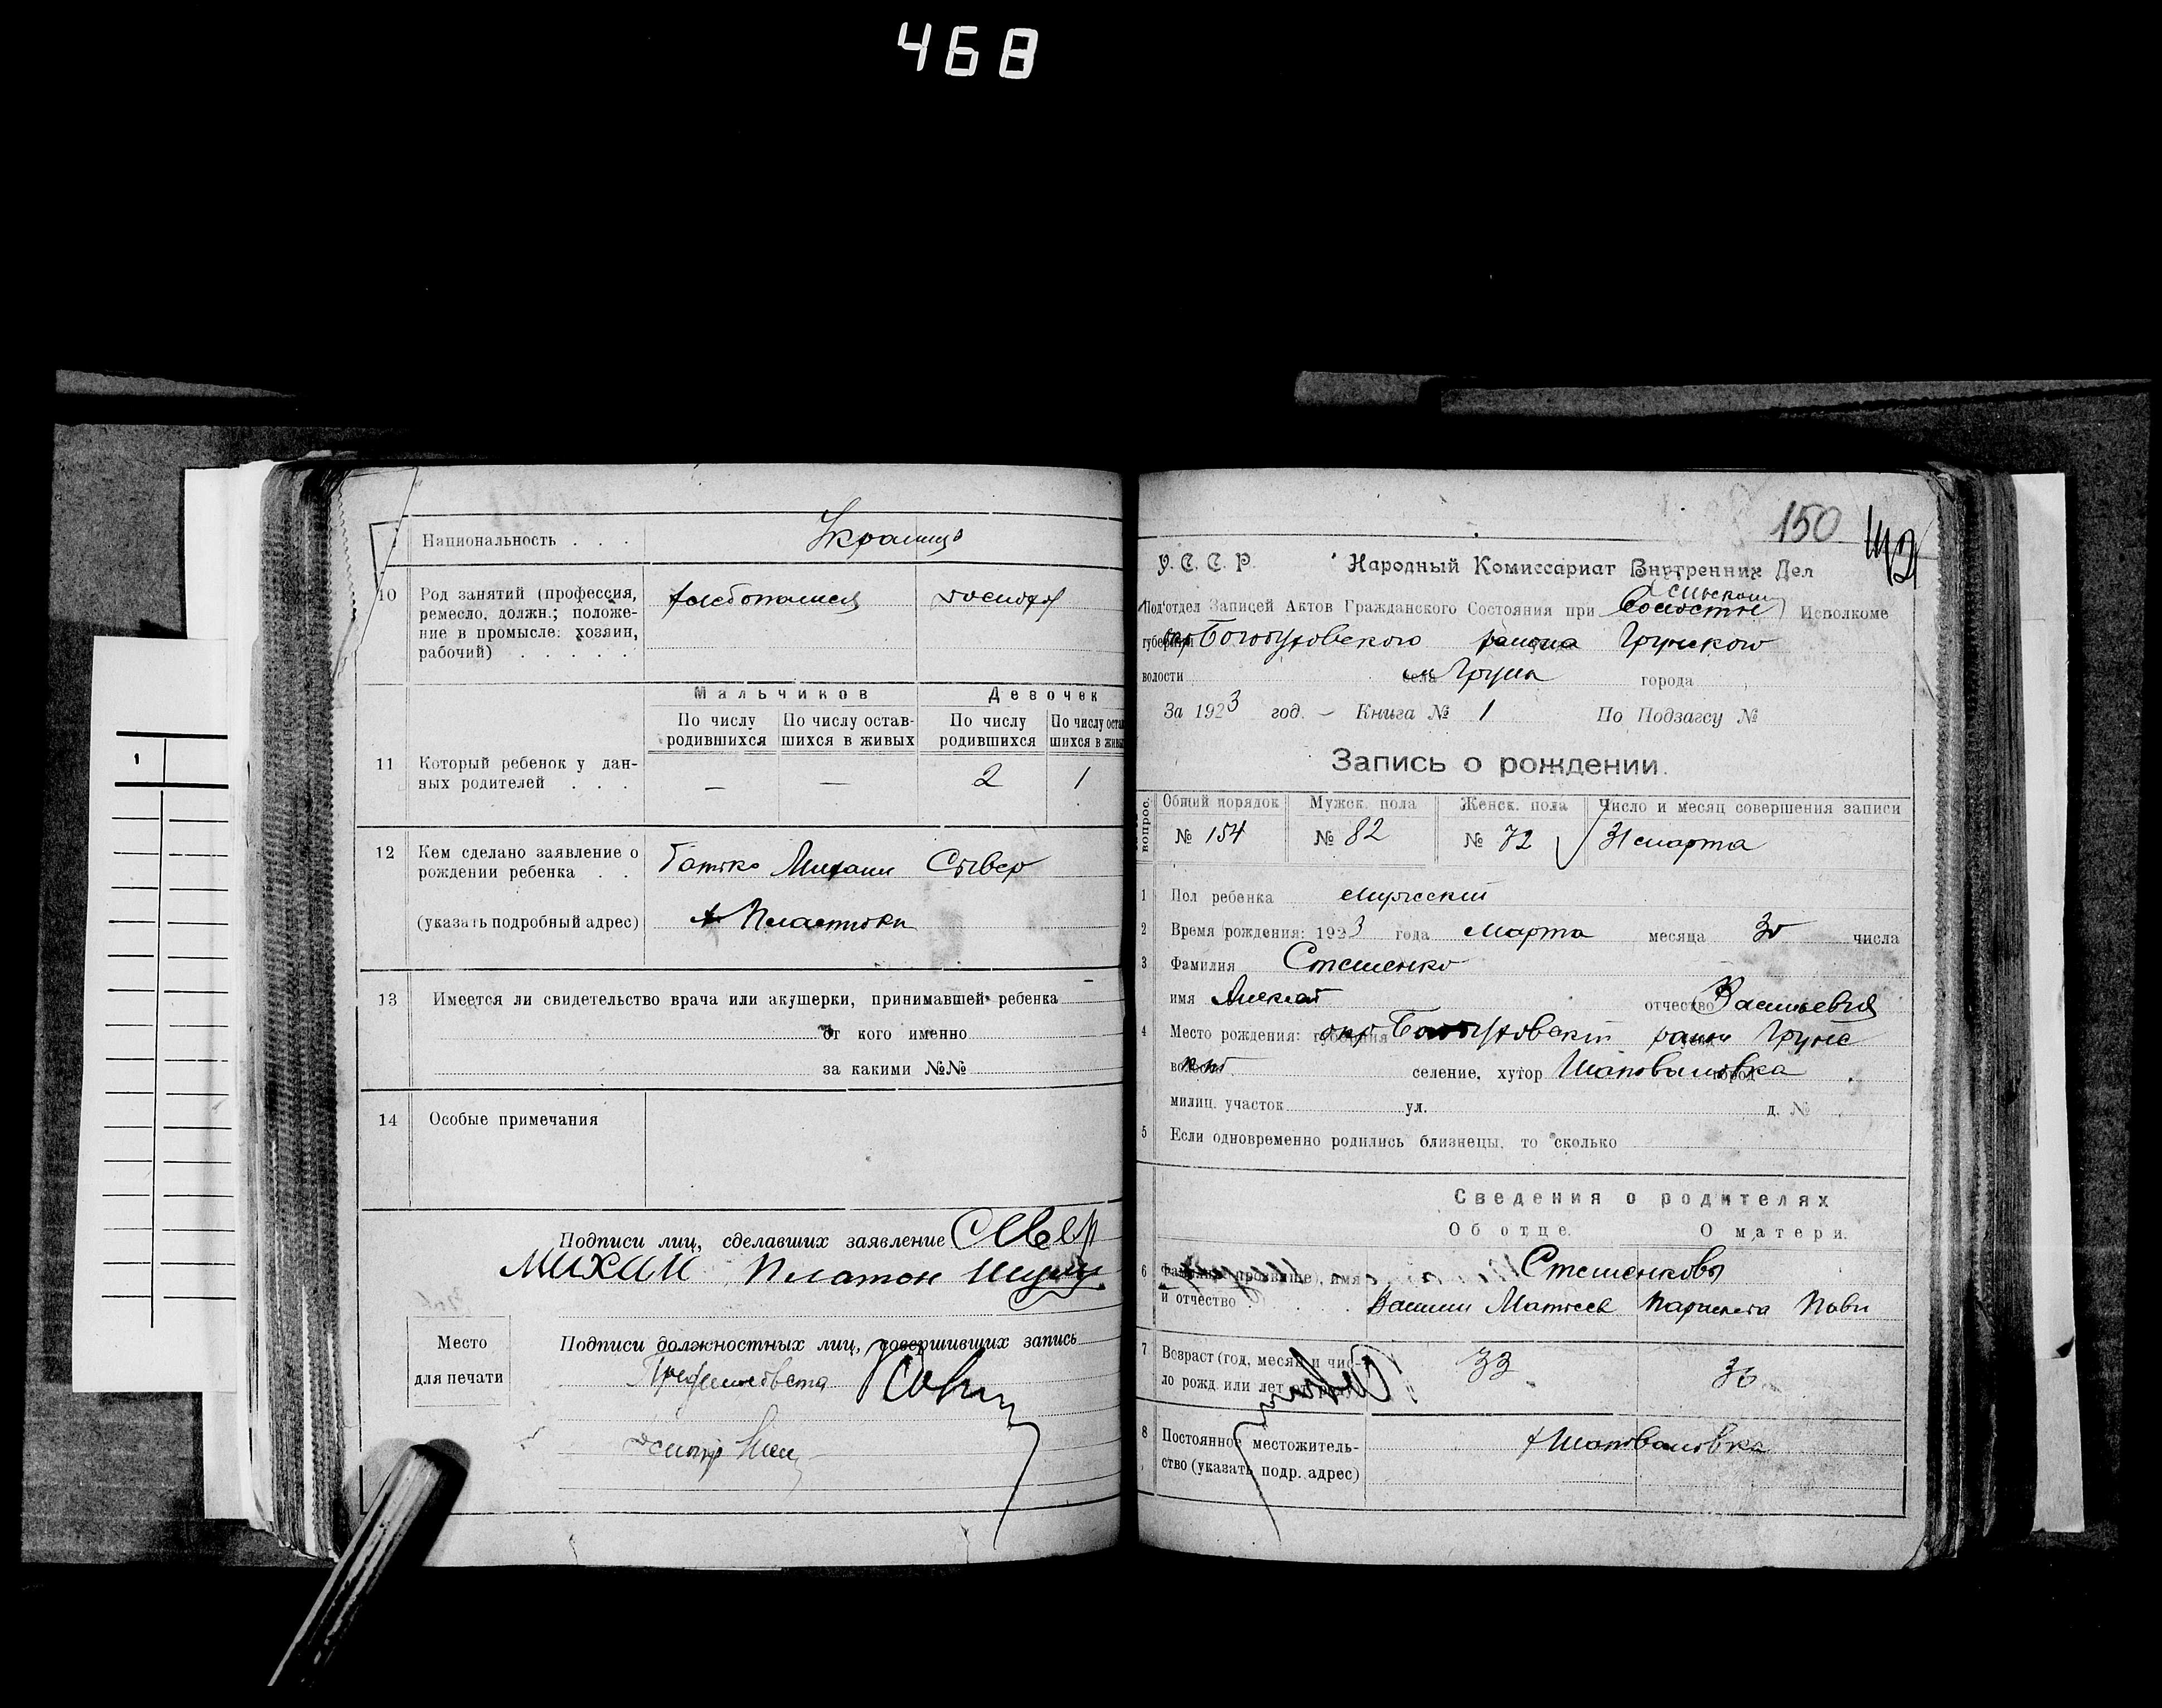 468
Национальность . . . Украинцы
10 Род занятий (профессия, ремесло, должн.; положение в промысле: хозяин, рабочий) . . . . .
Мальчиков Девочек
По числу родившихся По числу оставшихся в живых По числу родившихся По числу оста шихся в живы
11 Который ребенок у данных родителей . . . — — 2 1
12 Кем сделано заявление о рождении ребенка . . Батько Михаил Сывер
(указать подробный адрес)
13 Имеется ли свидетельство врача или акушерки, принимавшей ребенка
от кого именно
за какими №№
14 Особые примечания
Подписи лиц, сделавших заявление Сывер
Михаил Платон
Место для печати
Подписи должностных лиц, совершивших запись
150
У. С. С. Р. Народный Комиссариат Внутренних Дел
Под'отдел Записей Актов Гражданского Состояния при Исполкоме
губернии окр Богодуховского района Грунского
волости села Грунь города
За 1923 год. — Книга № 1 По Подзагсу №
Запись о рождении.
вопрос. Общий порядок Мужск. пола Женск. пола Число и месяц совершения записи
№ 154 № 82 № 72 31 марта
1 Пол ребенка мужский
2 Время рождения: 1923 года марта месяца 30 числа
3 Фамилия Стешенко
имя отчество Васильевич
4 Место рождения: губерния окр Богодуховский район Грунс
волость кий селение, хутор Шаповаловка город
милиц. участок ул. д. №
5 Если одновременно родились близнецы, то сколько
Сведения о родителях
Об отце. О матери.
6 Фамилия (прозвище), имя Стешенковы
и отчество . . . . . Василий Матвеев
7 Возраст (год, месяц и число рожд. или лет 33
8 Постоянное местожительство (указать подр. адрес) х Шаповаловка